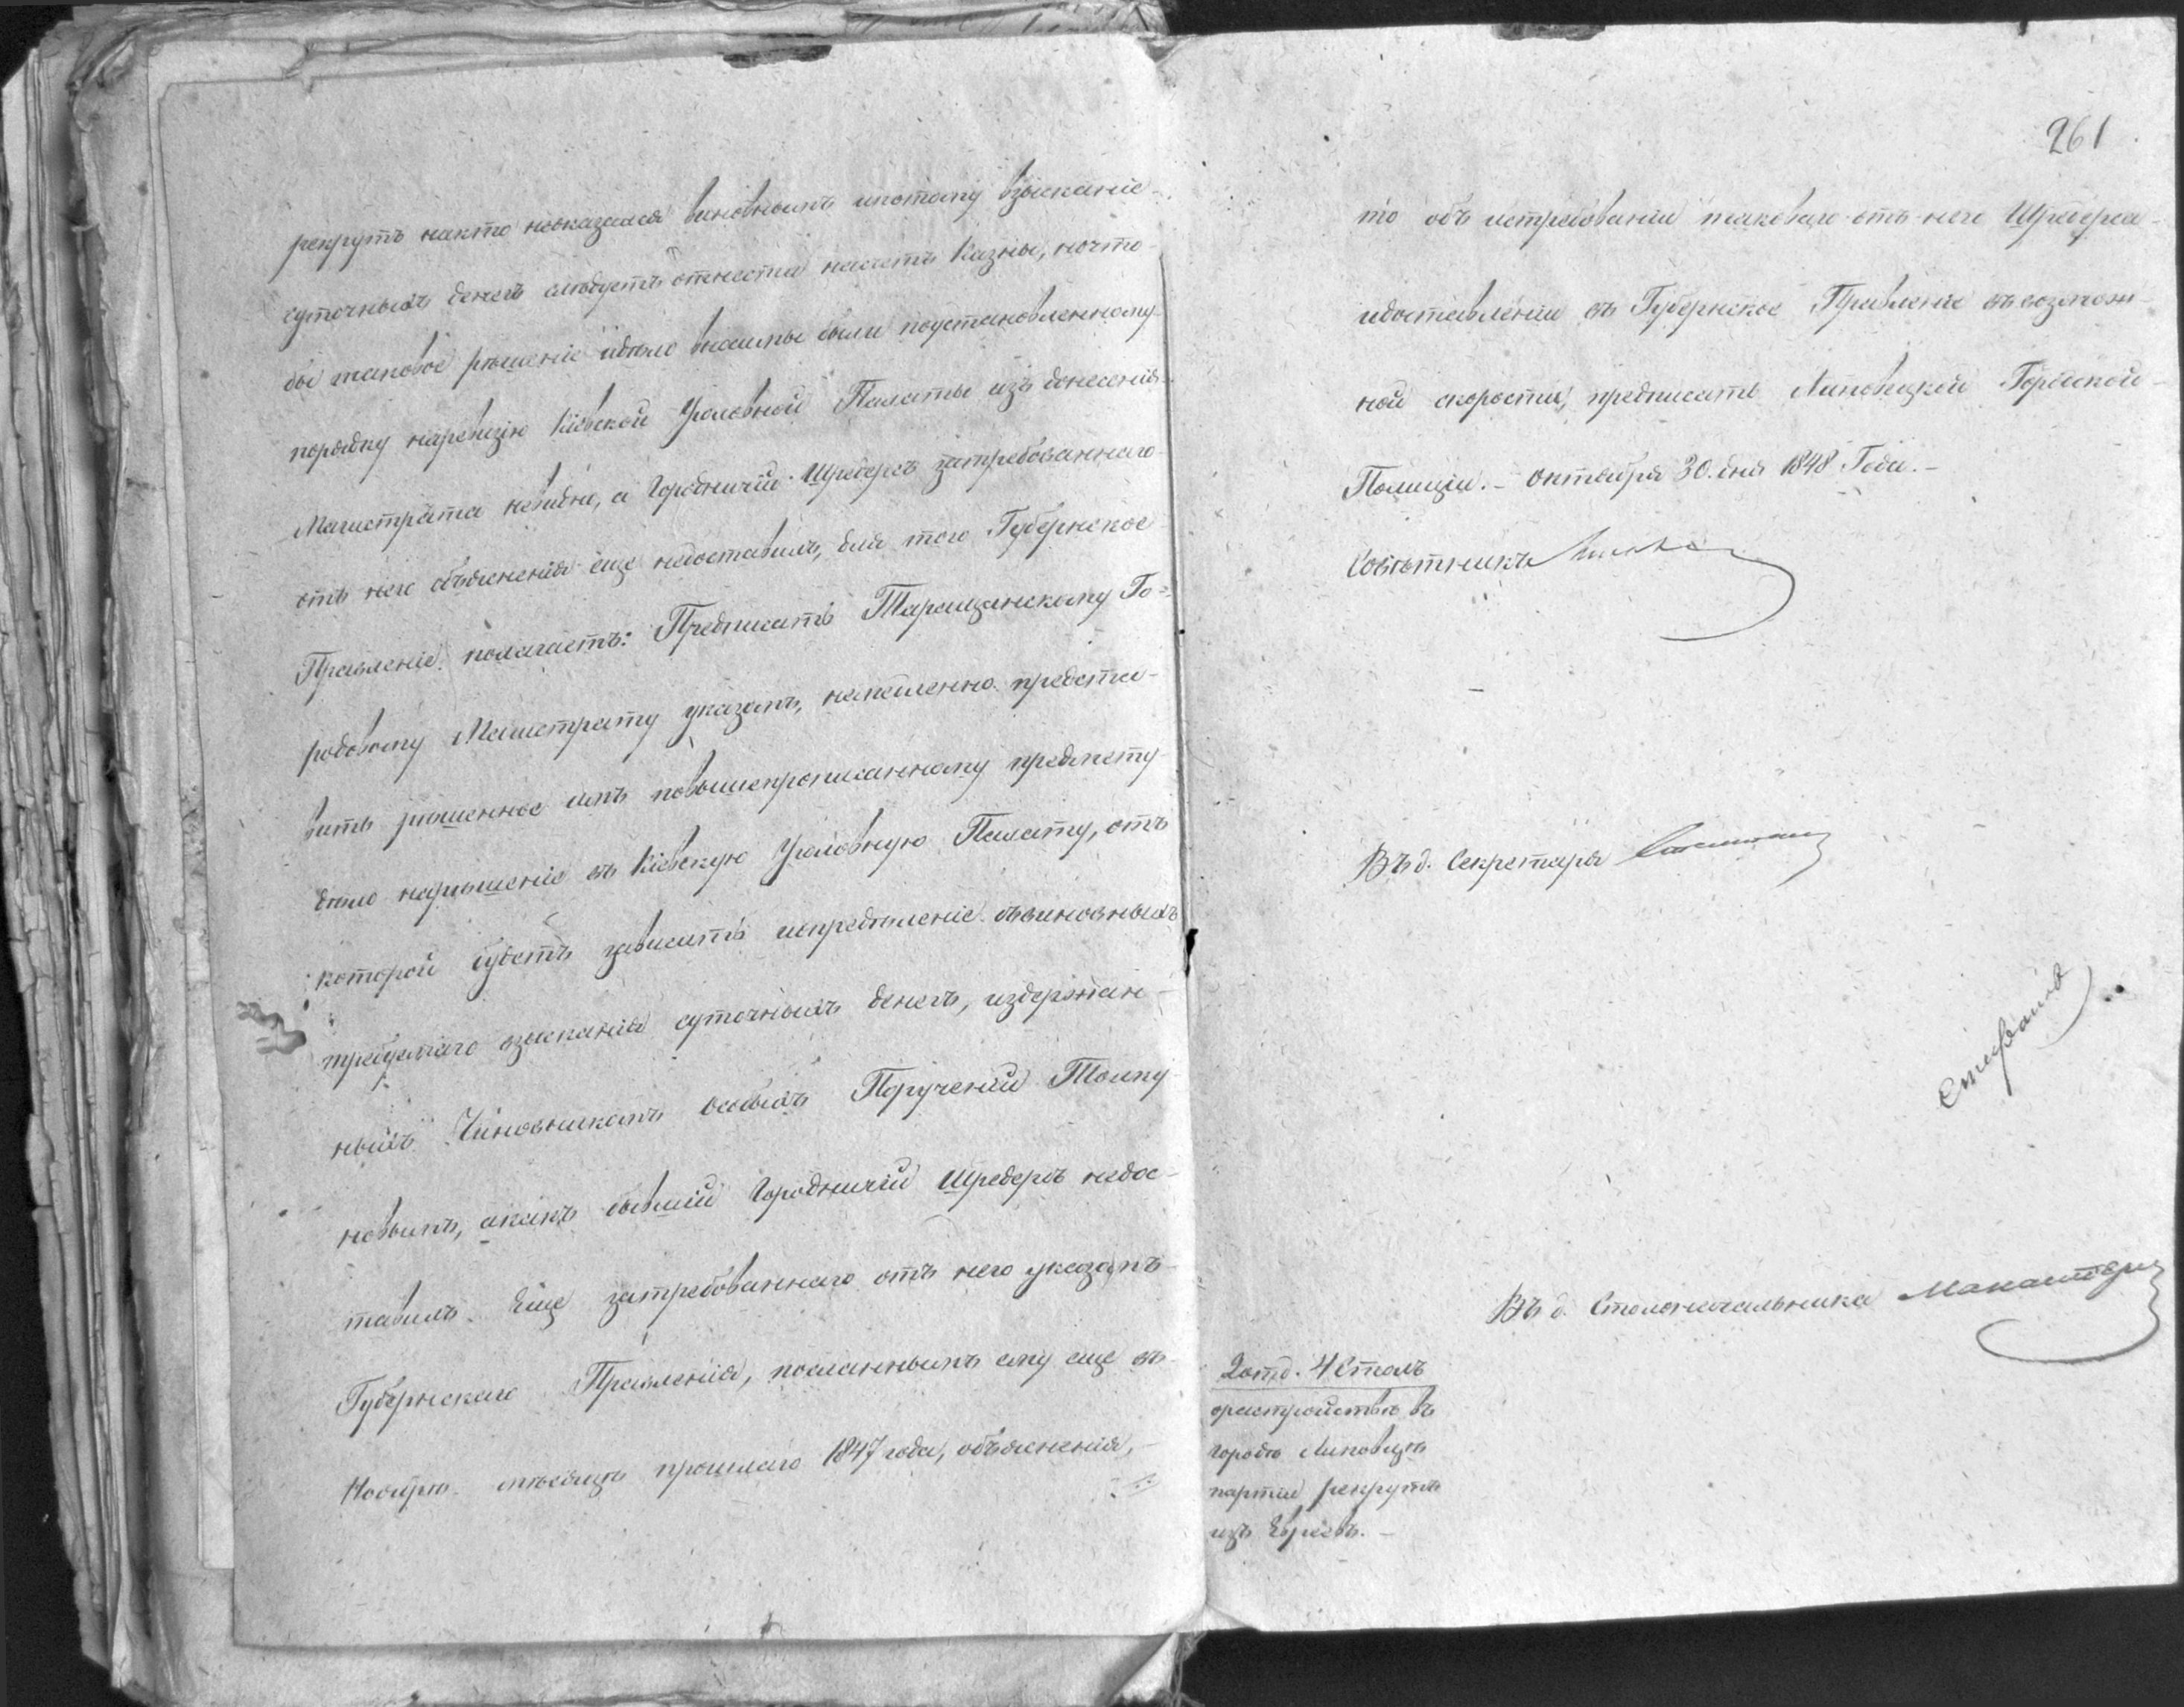 рекрутъ никто неоказался виновнымъ ипотому взысканіе
суточныхъ денегъ слѣдуетъ отнести насчетъ Казны, ночто
бы таковое рѣшеніе идѣло внесены были поустановленному
порядку наревизію Кіевской Уголовной Палаты изъ донесенія
Магистрата невидно, а Городничій Шредеръ затребованнаго
отъ него объясненія еще недоставилъ, для того Губернское
Правленіе полагаетъ: Предписать Таращанскому Го-
родовому Магистрату указомъ, немедленно предста-
вить рѣшенное имъ повышепрописанному предмету
дѣло наревизію въ Кіевскую Уголовную Палату, отъ
которой будетъ зависѣть иопредѣленіе съвиновныхъ
требуемаго взысканія суточныхъ денегъ, издержан-
ныхъ Чиновникомъ особыхъ Порученій Толпу
новымъ, акакъ бывшій Городничій Шредеръ недос-
тавилъ еще затребованнаго отъ него указомъ
Губернскаго Правленія, посланнымъ ему еще въ
Ноябрѣ мѣсяцѣ прошлаго 1847 года, объясненія,
261
то объ истребованіи таковаго отъ него Шредера
идоставленіи въ Губернское Правленіе въ возмож-
ной скорости, предписать Липовецкой Городской
Полиціи. – Октября 30. дня 1848 Года. –
Совѣтникъ
Въ д. Секретаря
Въ д. Столоначальника
2 отд. 4 Столъ
орастройствѣ въ
городѣ Липовцѣ
партіи рекрутъ
изъ Евреевъ. –